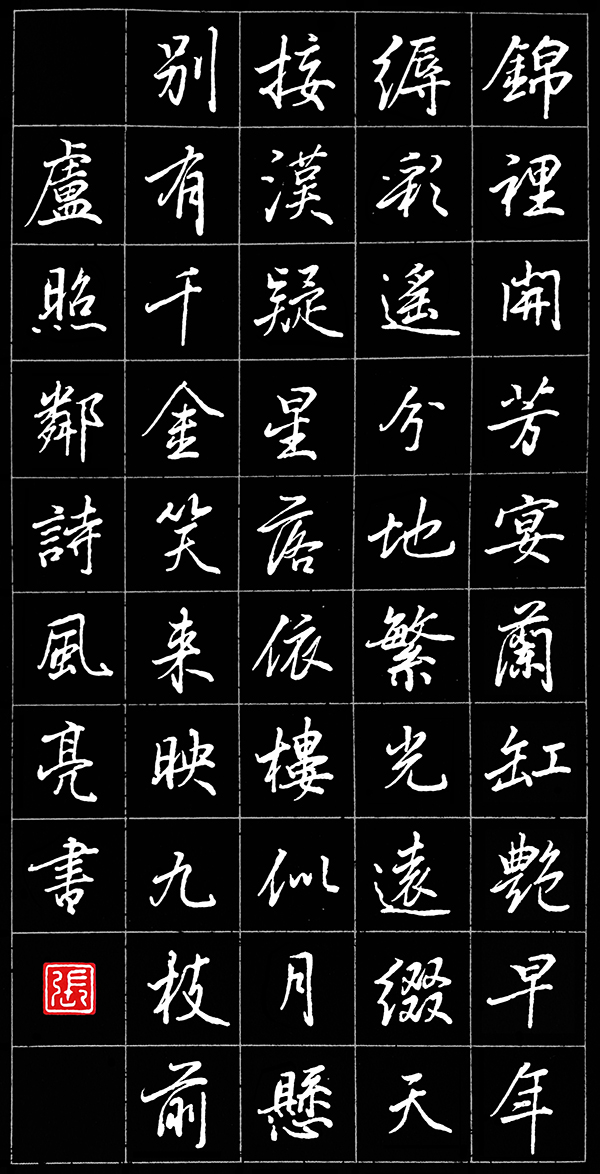 錦裡開芳宴蘭缸艷早年
縟彩遥分地繁光遠綴天
接漢疑星落依樓似月懸
別有千金笑来映九枝前
盧照鄰詩風亮書
張